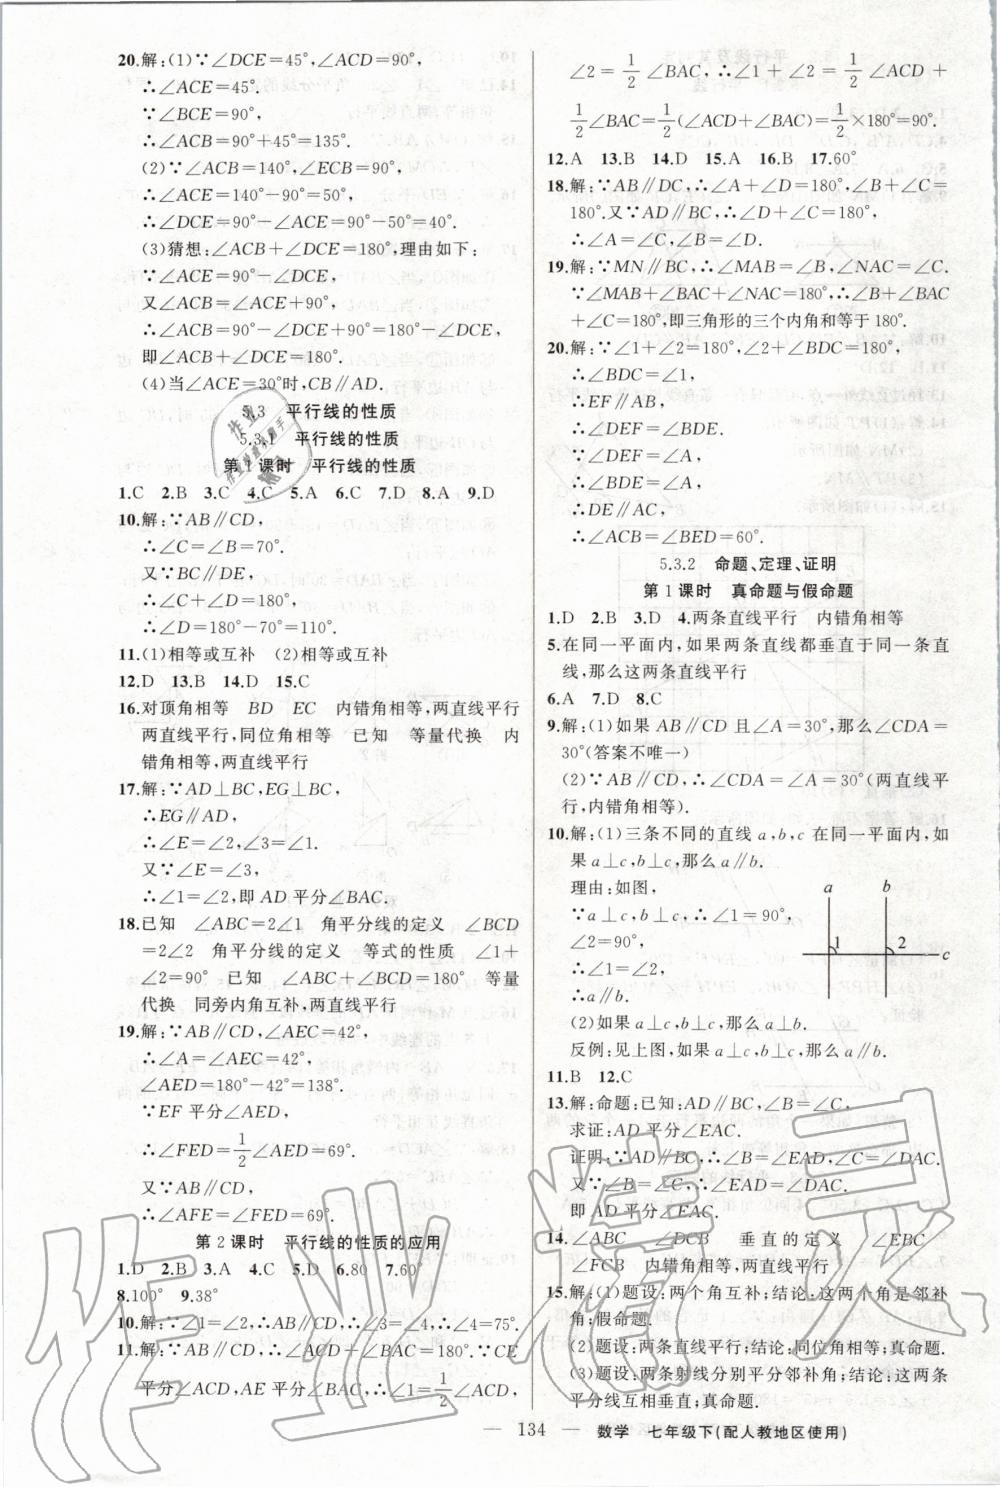 20.解:(1)∵∠DCE=45°,∠ACD=90°,
∴∠ACE=45°.
∵∠BCE=90°,
∴∠ACB=90°+45°=135°.
(2)∵∠ACB=140°,∠ECB=90°,
∴∠ACE=140°-90°=50°,
∴∠DCE=90°-∠ACE=90°-50°=40°.
(3)猜想:∠ACB+∠DCE=180°,理由如下:
∵∠ACE=90°-∠DCE,
又∠ACB=∠ACE+90°,
∴∠ACB=90°-∠DCE+90°=180°-∠DCE,
即∠ACB+∠DCE=180°.
(4)当∠ACE=30°时,CB∥AD.
5.3 平行线的性质
5.3.1 平行线的性质
第1课时 平行线的性质
1.C 2.B 3.C 4.C 5.A 6.C 7.D 8.A 9.D
10.解:∵AB∥CD,
∴∠C=∠B=70°.
又∵BC∥DE,
∴∠C+∠D=180°,
∴∠D=180°-70°=110°.
11.(1)相等或互补 (2)相等或互补
12.D 13.B 14.D 15.C
16.对顶角相等 BD EC 内错角相等,两直线平行
两直线平行,同位角相等 已知 等量代换 内
错角相等,两直线平行
17.解:∵AD⊥BC,EG⊥BC,
∴EG∥AD,
∴∠E=∠2,∠3=∠1.
又∵∠E=∠3,
∴∠1=∠2,即AD平分∠BAC.
18.已知 ∠ABC=2∠1 角平分线的定义 ∠BCD
=2∠2 角平分线的定义 等式的性质 ∠1+
∠2=90° 已知 ∠ABC+∠BCD=180° 等量
代换 同旁内角互补,两直线平行
19.解:∵AB∥CD,∠AEC=42°,
∴∠A=∠AEC=42°,
∠AED=180°-42°=138°.
∵EF平分∠AED,
∴∠FED=1/2∠AED=69°.
又∵AB∥CD,
∴∠AFE=∠FED=69°.
第2课时 平行线的性质的应用
1.D 2.B 3.A 4.C 5.D 6.80 7.60°
8.100° 9.38°
10.解:∵∠1=∠2,∴AB∥CD,∴∠3=∠4,∴∠4=75°.
11.解:∵AB∥CD,∴∠ACD+∠BAC=180°.∵CE
平分∠ACD,AE平分∠BAC,∴∠1=1/2∠ACD,
∠2=1/2∠BAC,∴∠1+∠2=1/2∠ACD+
1/2∠BAC=1/2(∠ACD+∠BAC)=1/2×180°=90°.
12.A 13.B 14.D 15.A 16.B 17.60°
18.解:∵AB∥DC,∴∠A+∠D=180°,∠B+∠C=
180°.又∵AD∥BC,∴∠D+∠C=180°,
∴∠A=∠C,∠B=∠D.
19.解:∵MN∥BC,∴∠MAB=∠B,∠NAC=∠C.
∵∠MAB+∠BAC+∠NAC=180°,∴∠B+∠BAC
+∠C=180°,即三角形的三个内角和等于180°.
20.解:∵∠1+∠2=180°,∠2+∠BDC=180°,
∴∠BDC=∠1,
∴EF∥AB,
∴∠DEF=∠BDE.
∵∠DEF=∠A,
∴∠BDE=∠A,
∴DE∥AC,
∴∠ACB=∠BED=60°.
5.3.2 命题、定理、证明
第1课时 真命题与假命题
1.D 2.B 3.D 4.两条直线平行 内错角相等
5.在同一平面内,如果两条直线都垂直于同一条直
线,那么这两条直线平行
6.A 7.D 8.C
9.解:(1)如果AB∥CD且∠A=30°,那么∠CDA=
30°(答案不唯一)
(2)∵AB∥CD,∴∠CDA=∠A=30°(两直线平
行,内错角相等).
10.解:(1)三条不同的直线a,b,c在同一平面内,如
果a⊥c,b⊥c,那么a∥b.
理由:如图,
∵a⊥c,b⊥c,∴∠1=90°,
∠2=90°,
∴∠1=∠2,
∴a∥b.
a b
1 2 c
(2)如果a⊥c,b⊥c,那么a⊥b.
反例:见上图,如果a⊥c,b⊥c,那么a∥b.
11.B 12.C
13.解:命题:已知:AD∥BC,∠B=∠C,
求证:AD平分∠EAC.
证明:∵AD∥BC,∴∠B=∠EAD,∠C=∠DAC.
又∵∠B=∠C,∴∠EAD=∠DAC.
即AD平分∠EAC.
14.∠ABC ∠DCB 垂直的定义 ∠EBC
∠FCB 内错角相等,两直线平行
15.解:(1)题设:两个角互补;结论:这两个角是邻补
角;假命题.
(2)题设:两条直线平行;结论:同位角相等;真命题.
(3)题设:两条射线分别平分邻补角;结论:这两条
平分线互相垂直;真命题.
— 134 — 数学 七年级下(配人教地区使用)
作业精灵